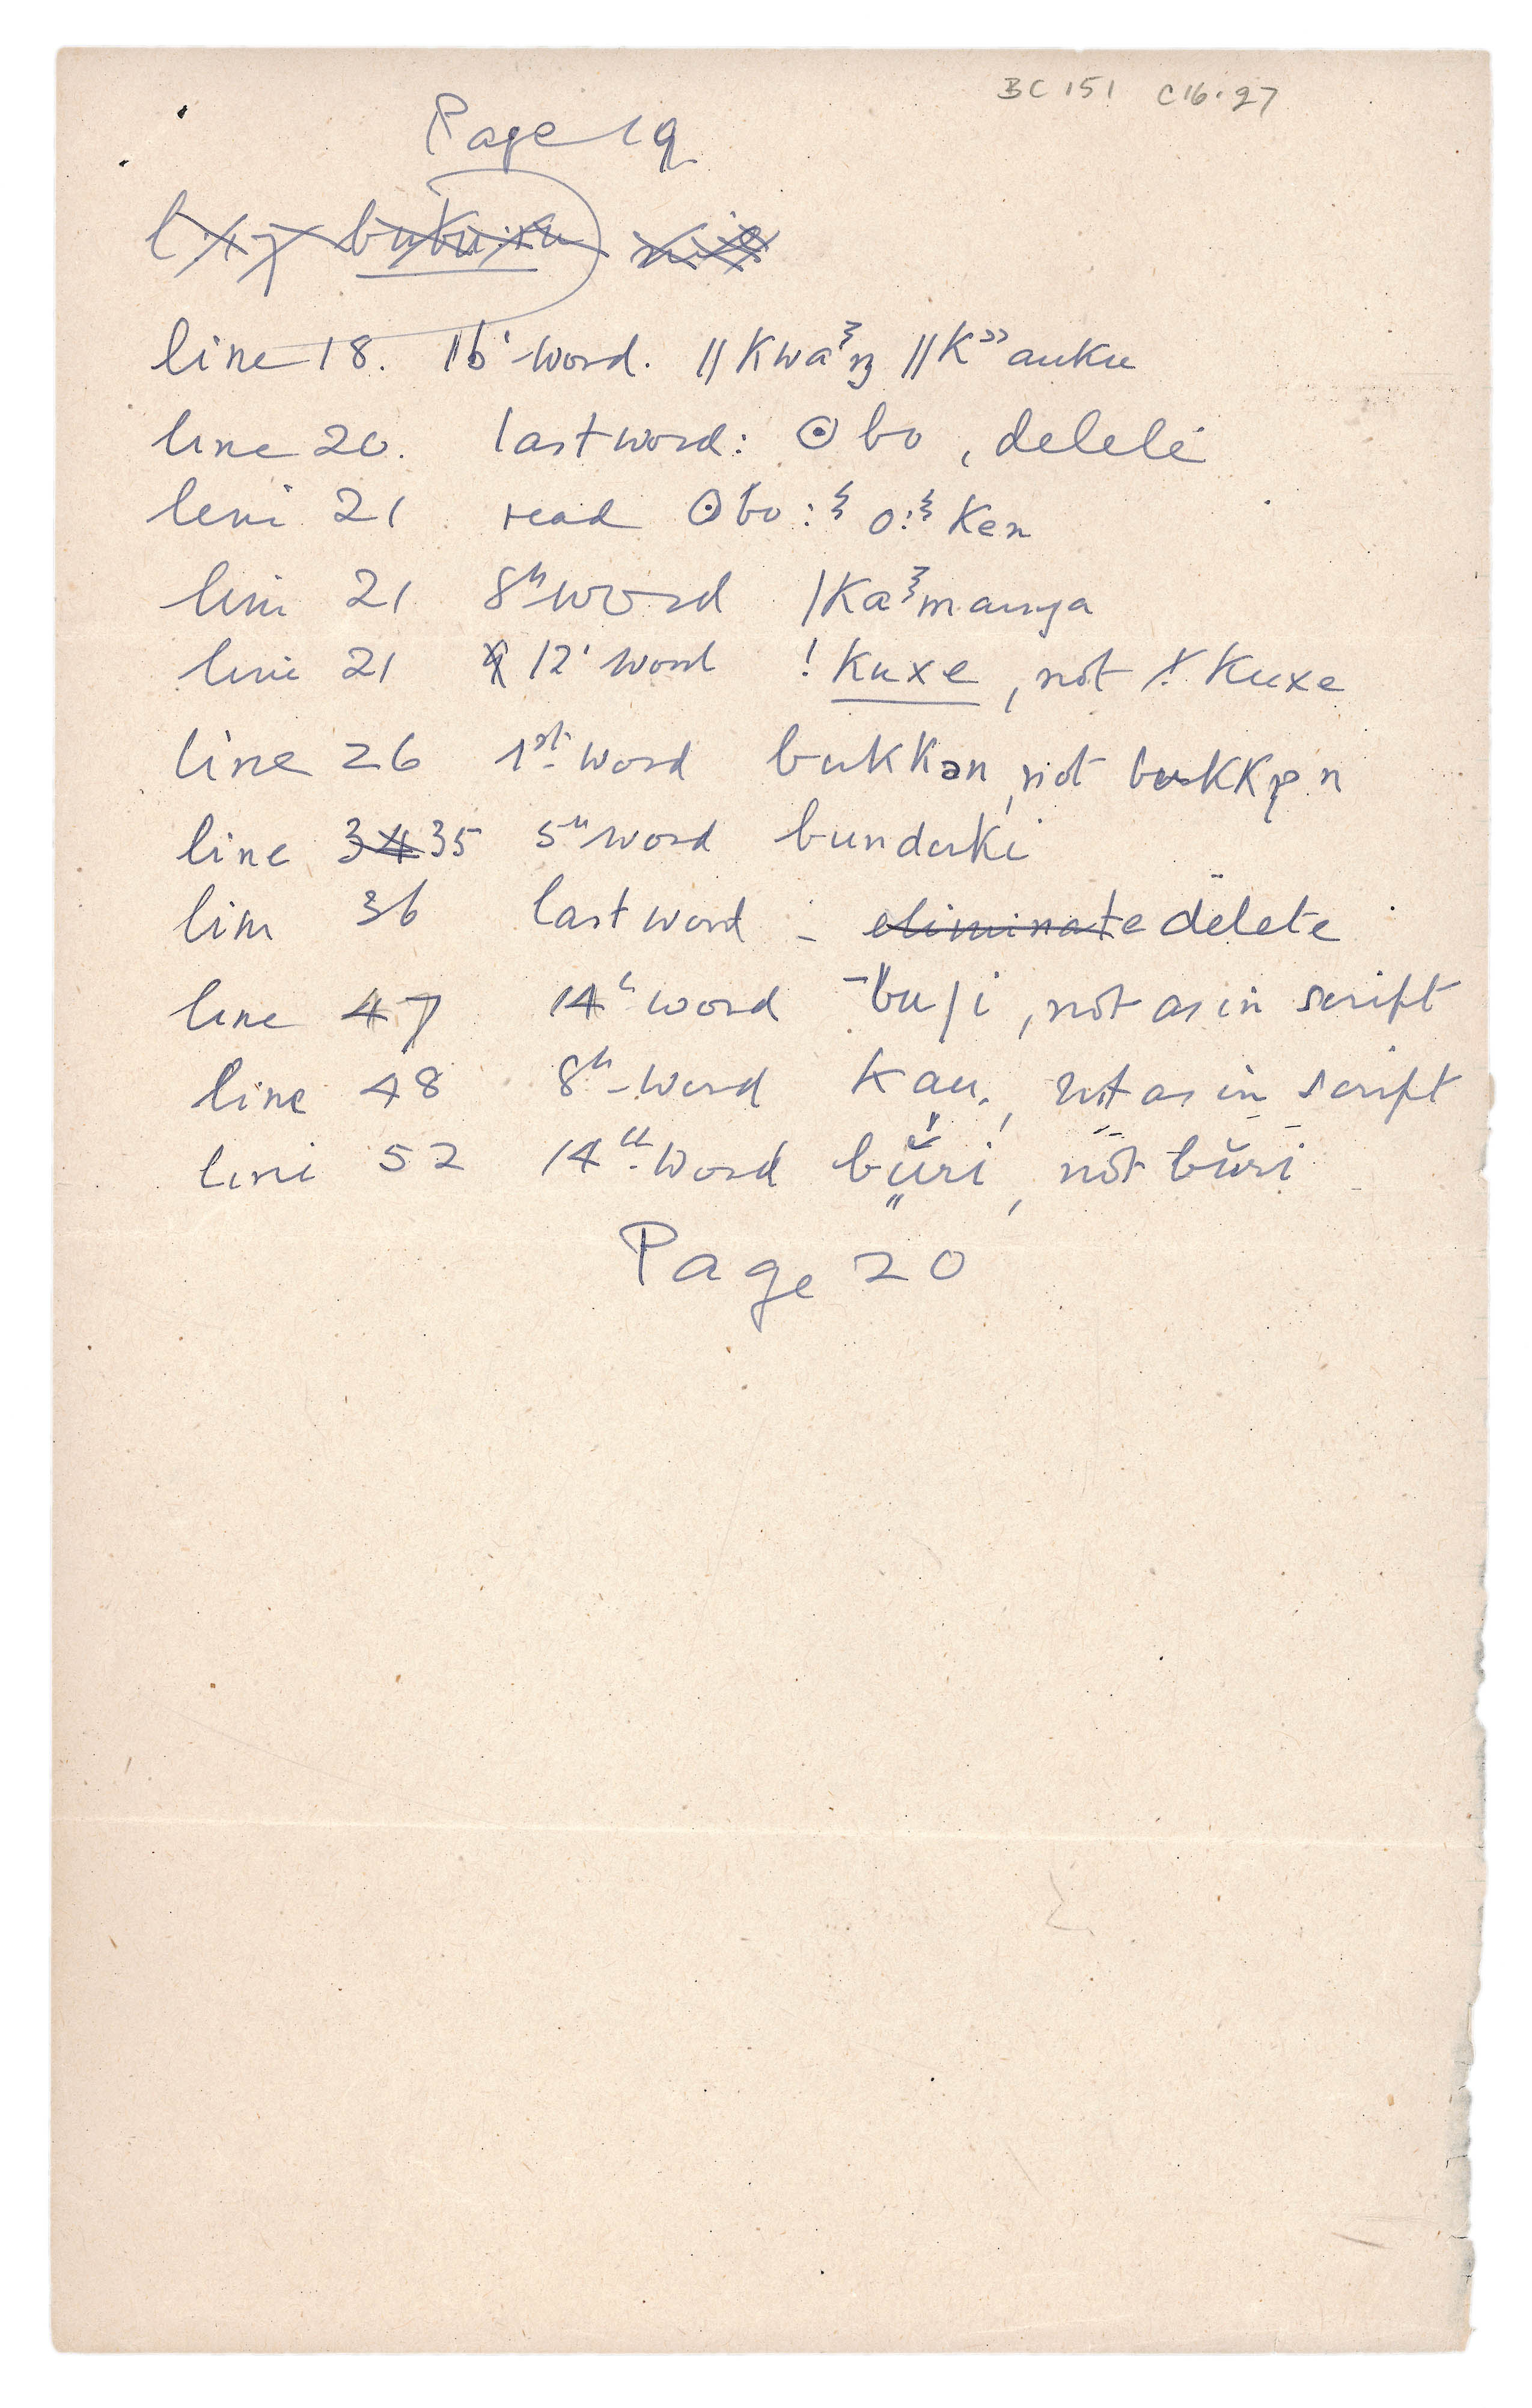 BC 151 C16.27
Page 19
line 18. 16' word. ||Kwaᶾŋ ||K»auku
line 20. last word: ʘbo, delete
line 21 read ʘbo:ᶾ o:ᶾ Ken
line 21 8th word |Kaᶾmaŋa
line 21 12' word !Kuxe, not !Kuxe
line 26 1st word bukkən, not bukk n
line 35 5th word bunduki
line 36 last word - delete
line 47 14th word -bu/i, not as in script
line 48 8th word Kau., not as in script
line 52 14th word bŭri, not bŭri
Page 20